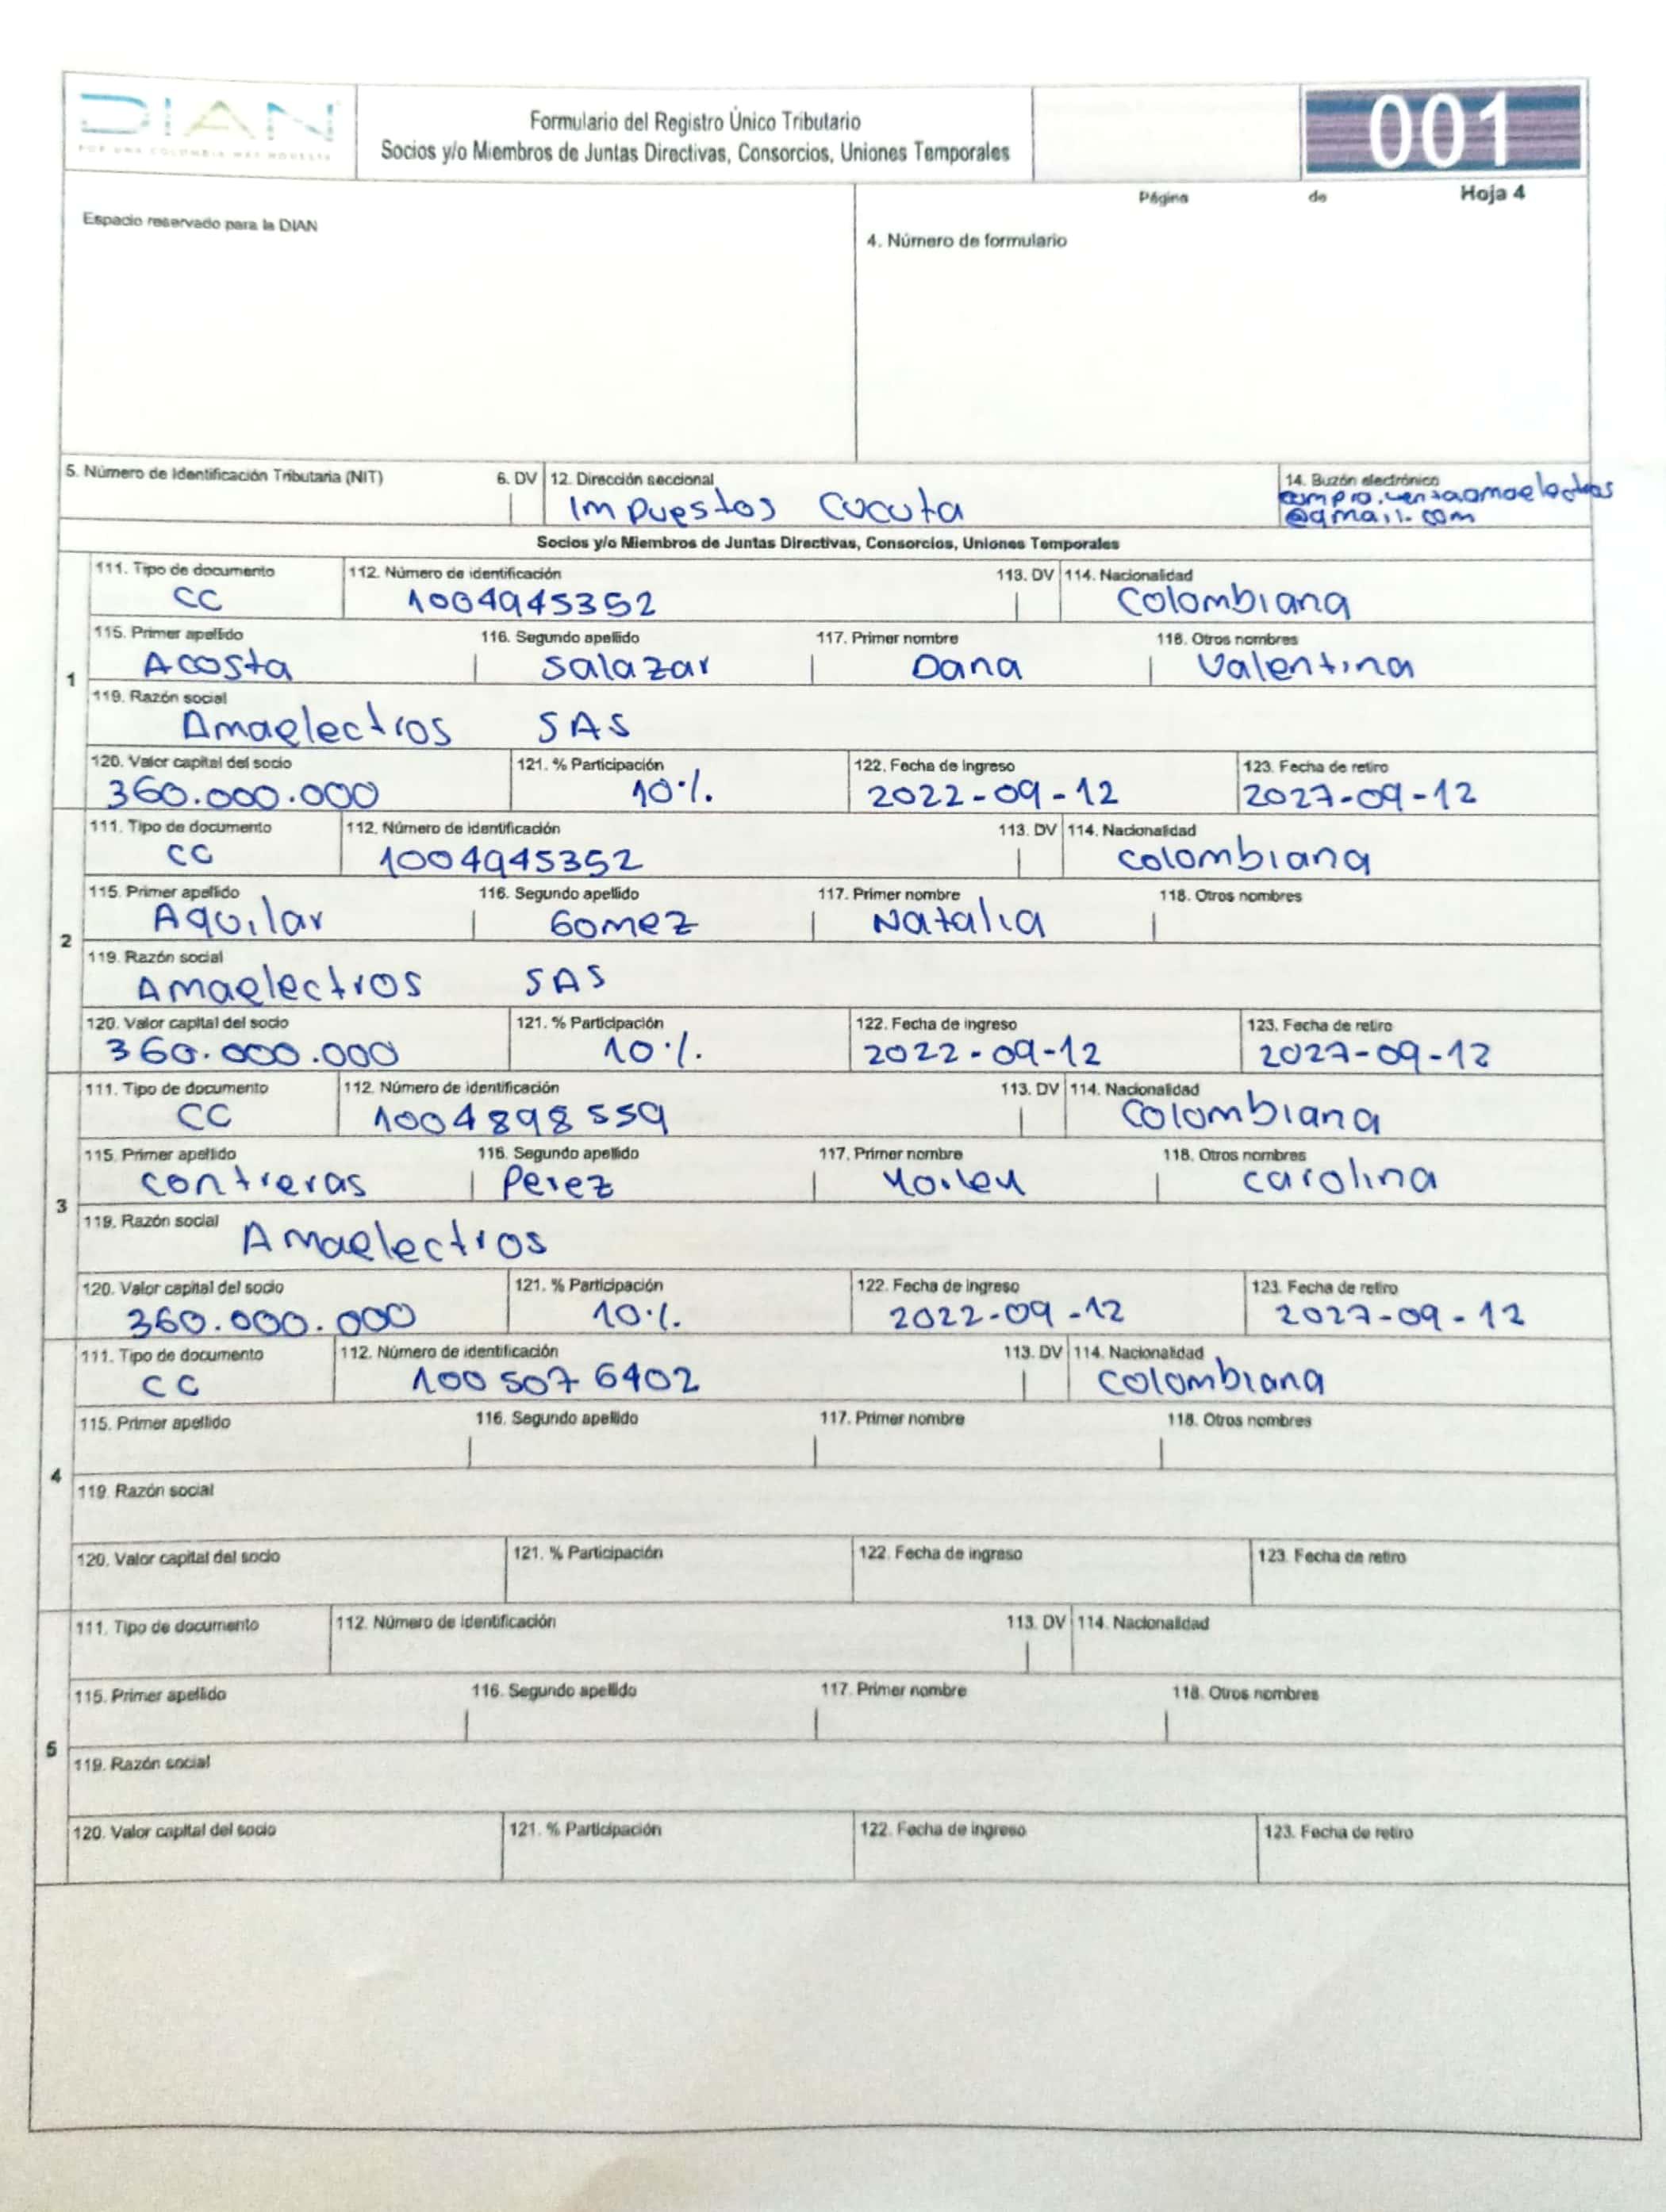 DIAN
POR UNA COLOMBIA MÁS HONESTA
Formulario del Registro Único Tributario
Socios y/o Miembros de Juntas Directivas, Consorcios, Uniones Temporales
001
Página de Hoja 4
Espacio reservado para la DIAN
4. Número de formulario
5. Número de Identificación Tributaria (NIT) 6. DV 12. Dirección seccional 14. Buzón electrónico
Impuestos Cucuta compro.ventaamaelectros
@gmail.com
Socios y/o Miembros de Juntas Directivas, Consorcios, Uniones Temporales
111. Tipo de documento 112. Número de identificación 113. DV 114. Nacionalidad
CC 1004945352 Colombiana
115. Primer apellido 116. Segundo apellido 117. Primer nombre 118. Otros nombres
Acosta Salazar Dana Valentina
1
119. Razón social
Amaelectros SAS
120. Valor capital del socio 121. % Participación 122. Fecha de ingreso 123. Fecha de retiro
360.000.000 10% 2022-09-12 2027-09-12
111. Tipo de documento 112. Número de identificación 113. DV 114. Nacionalidad
CC 1004945352 Colombiana
115. Primer apellido 116. Segundo apellido 117. Primer nombre 118. Otros nombres
Aguilar Gomez Natalia
2
119. Razón social
Amaelectros SAS
120. Valor capital del socio 121. % Participación 122. Fecha de ingreso 123. Fecha de retiro
360.000.000 10% 2022-09-12 2027-09-12
111. Tipo de documento 112. Número de identificación 113. DV 114. Nacionalidad
CC 1004898559 Colombiana
115. Primer apellido 116. Segundo apellido 117. Primer nombre 118. Otros nombres
Contreras Perez Carolina
3
119. Razón social
Amaelectros
120. Valor capital del socio 121. % Participación 122. Fecha de ingreso 123. Fecha de retiro
360.000.000 10% 2022-09-12 2027-09-12
111. Tipo de documento 112. Número de identificación 113. DV 114. Nacionalidad
CC 1005076402 Colombiana
115. Primer apellido 116. Segundo apellido 117. Primer nombre 118. Otros nombres
4
119. Razón social
120. Valor capital del socio 121. % Participación 122. Fecha de ingreso 123. Fecha de retiro
111. Tipo de documento 112. Número de identificación 113. DV 114. Nacionalidad
115. Primer apellido 116. Segundo apellido 117. Primer nombre 118. Otros nombres
5
119. Razón social
120. Valor capital del socio 121. % Participación 122. Fecha de ingreso 123. Fecha de retiro